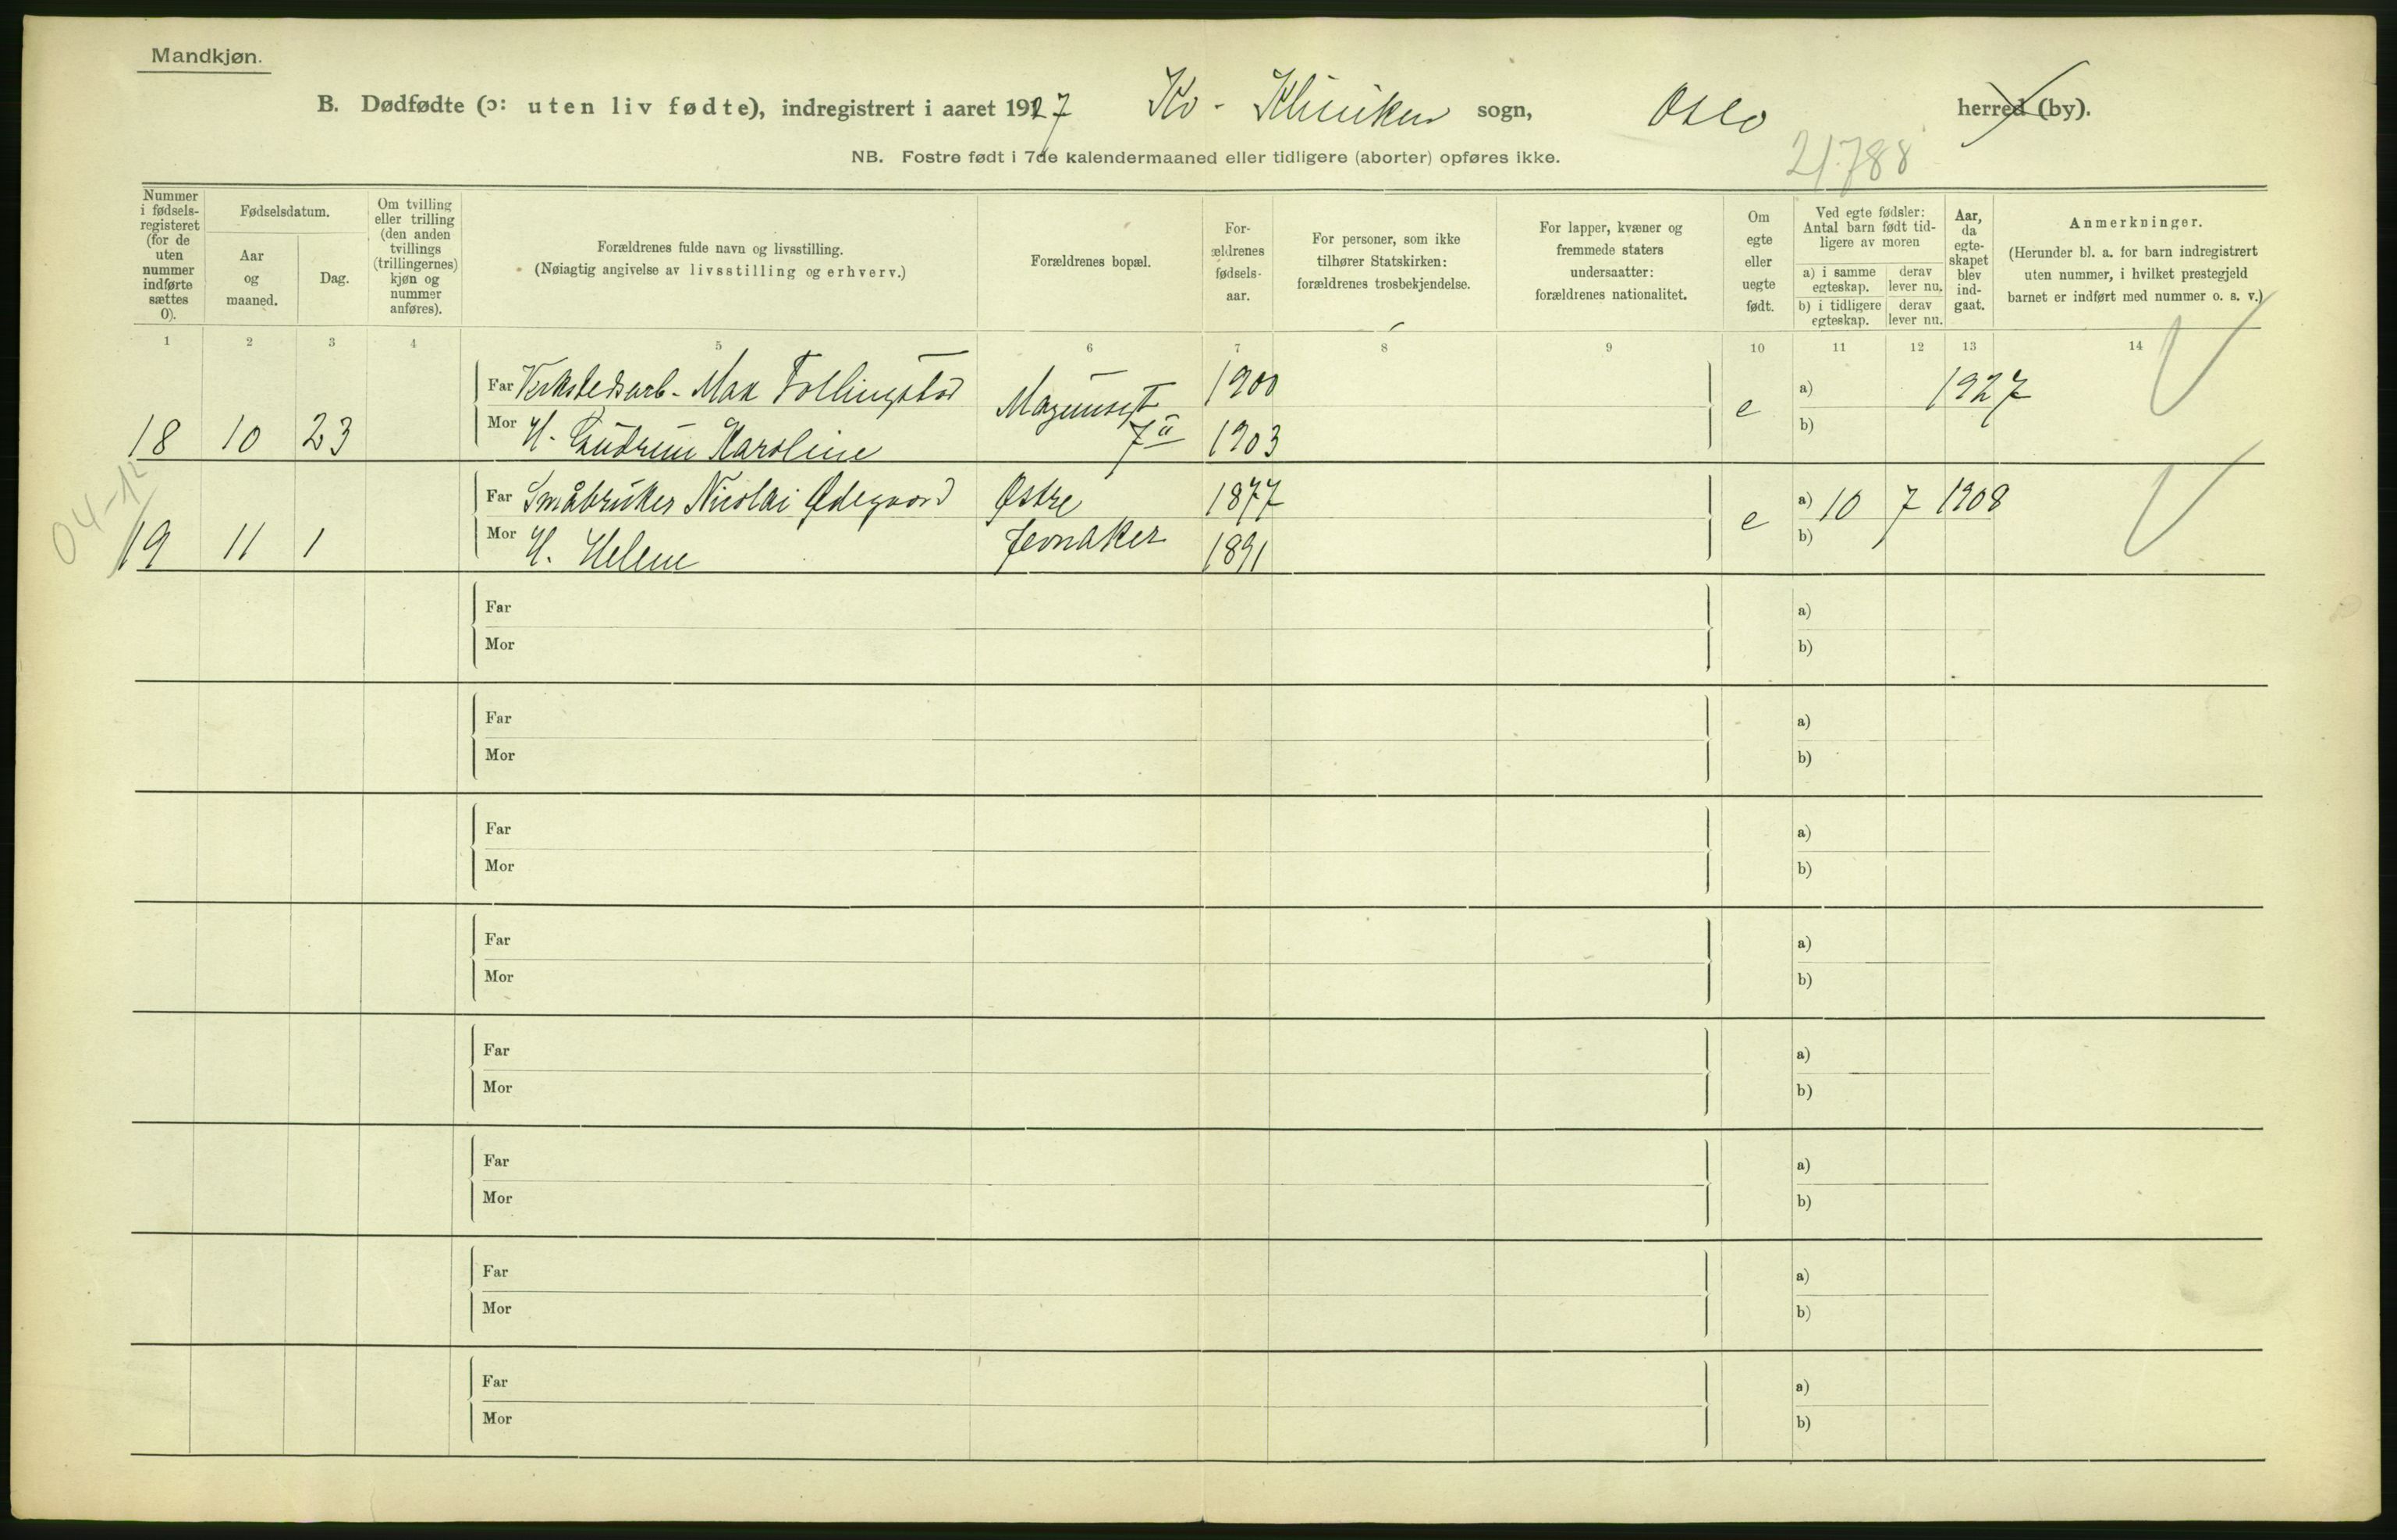 Mandkjøn.
B. Dødfødte (ɔ: uten liv fødte), indregistrert i aaret 1927 Kv - Kliniken sogn, Oslo herred (by).
NB. Fostre født i 7de kalendermaaned eller tidligere (aborter) opføres ikke.
21788
Nummer i fødsels-registeret (for de uten nummer indførte sættes 0).
Fødselsdatum.
Aar og maaned.
Dag.
Om tvilling eller trilling (den anden tvillings (trillingernes) kjøn og nummer anføres).
Forældrenes fulde navn og livsstilling.
(Nøiagtig angivelse av livsstilling og erhverv.)
Forældrenes bopæl.
For-ældrenes fødsels-aar.
For personer, som ikke tilhører Statskirken: forældrenes trosbekjendelse.
For lapper, kvæner og fremmede staters undersaatter: forældrenes nationalitet.
Om egte eller uegte født.
Ved egte fødsler: Antal barn født tid-ligere av moren
a) i samme egteskap.
derav lever nu.
b) i tidligere egteskap.
derav lever nu.
Aar, da egte-skapet blev ind-gaat.
Anmerkninger.
(Herunder bl. a. for barn indregistrert uten nummer, i hvilket prestegjeld barnet er indført med nummer o. s. v.)
1 2 3 4 5 6 7 8 9 10 11 12 13 14
Far Verkstedsarb. Max 1900 a) 1927
18 10 23 Mor H. Gudrun Karoline 7 II 1903 e b)
04-12
Far Småbruker Nicolai Ødegaard Østre 1877 a) 10 7 1908
19 11 1 Mor H. Helene Jevnaker 1891 e b)
Far a)
Mor b)
Far a)
Mor b)
Far a)
Mor b)
Far a)
Mor b)
Far a)
Mor b)
Far a)
Mor b)
Far a)
Mor b)
Far a)
Mor b)